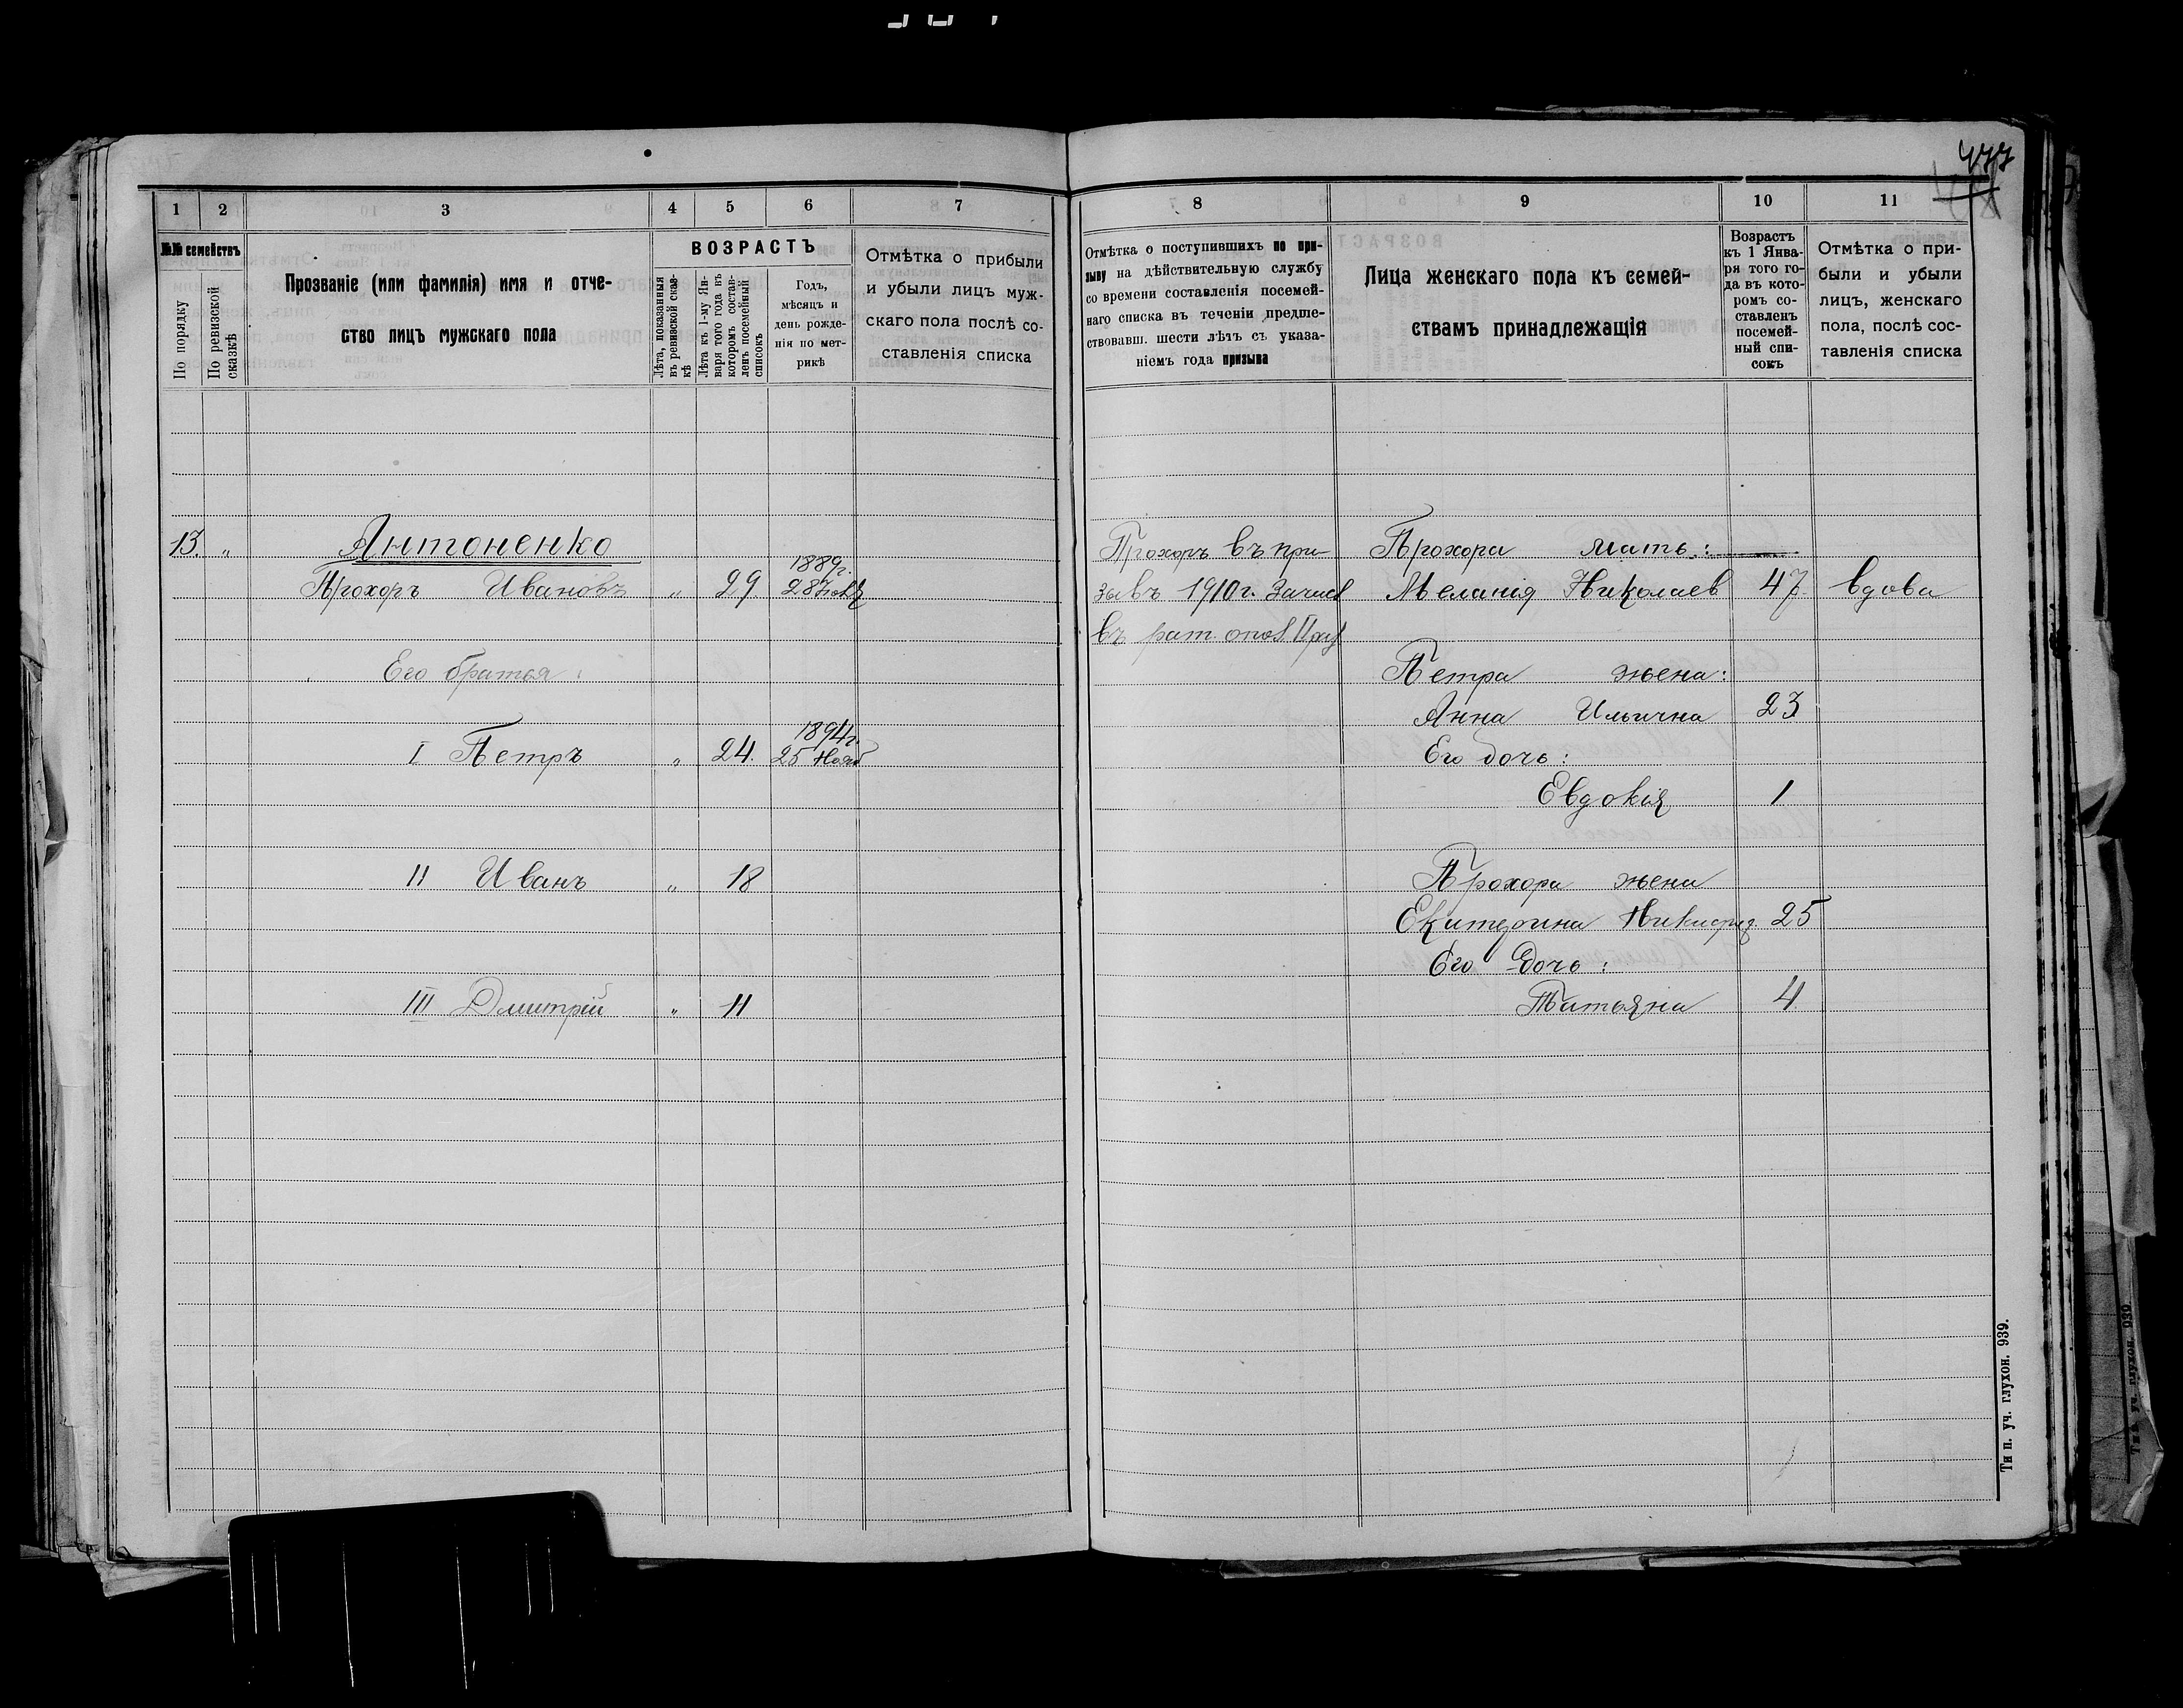 477
1 2 3 4 5 6 7
№№ семействъ
По порядку
По ревизской сказкѣ
Прозваніе (или фамилія) имя и отче-
ство лицъ мужскаго пола
ВОЗРАСТЪ
Лѣта, показанныя
въ ревизской сказ-
кѣ
Лѣта къ 1-му Ян-
варя того года въ
которомъ состав-
ленъ посемейный
списокъ
Годъ,
мѣсяцъ и
день рожде-
нія по мет-
рикѣ
Отмѣтка о прибыли
и убыли лицъ муж-
скаго пола послѣ со-
ставленія списка
13. " Антоненко
1889г.
Прохоръ Ивановъ " 29. 28 Іюля
Его братья:
1894г.
I Петръ " 24. 25 Нояб
II Иванъ " 18
III Дмитрій " 11
8 9 10 11
Отмѣтка о поступившихъ по при-
зыву на дѣйствительную службу
со времени составленія посемей-
наго списка въ теченіи предше-
ствовавш. шести лѣтъ съ указа-
ніемъ года призыва
Лица женскаго пола къ семей-
ствамъ принадлежащія
Возрастъ
къ 1 Янва-
ря того го-
да въ кото-
ромъ со-
ставленъ
посемей-
ный спи-
сокъ
Отмѣтка о при-
были и убыли
лицъ, женскаго
пола, послѣ сос-
тавленія списка
Прохоръ въ при- Прохора мать:
зывъ 1910г. Зачисл Меланія Николаев 47. вдова
въ рат. опол.
Петра жена:
Анна Ильична 23
Его дочь:
Евдокія 1
Прохора жена
Екатерина Никифор. 25
Его дочь:
Татьяна 4.
Тип. уч. глухон. 939.